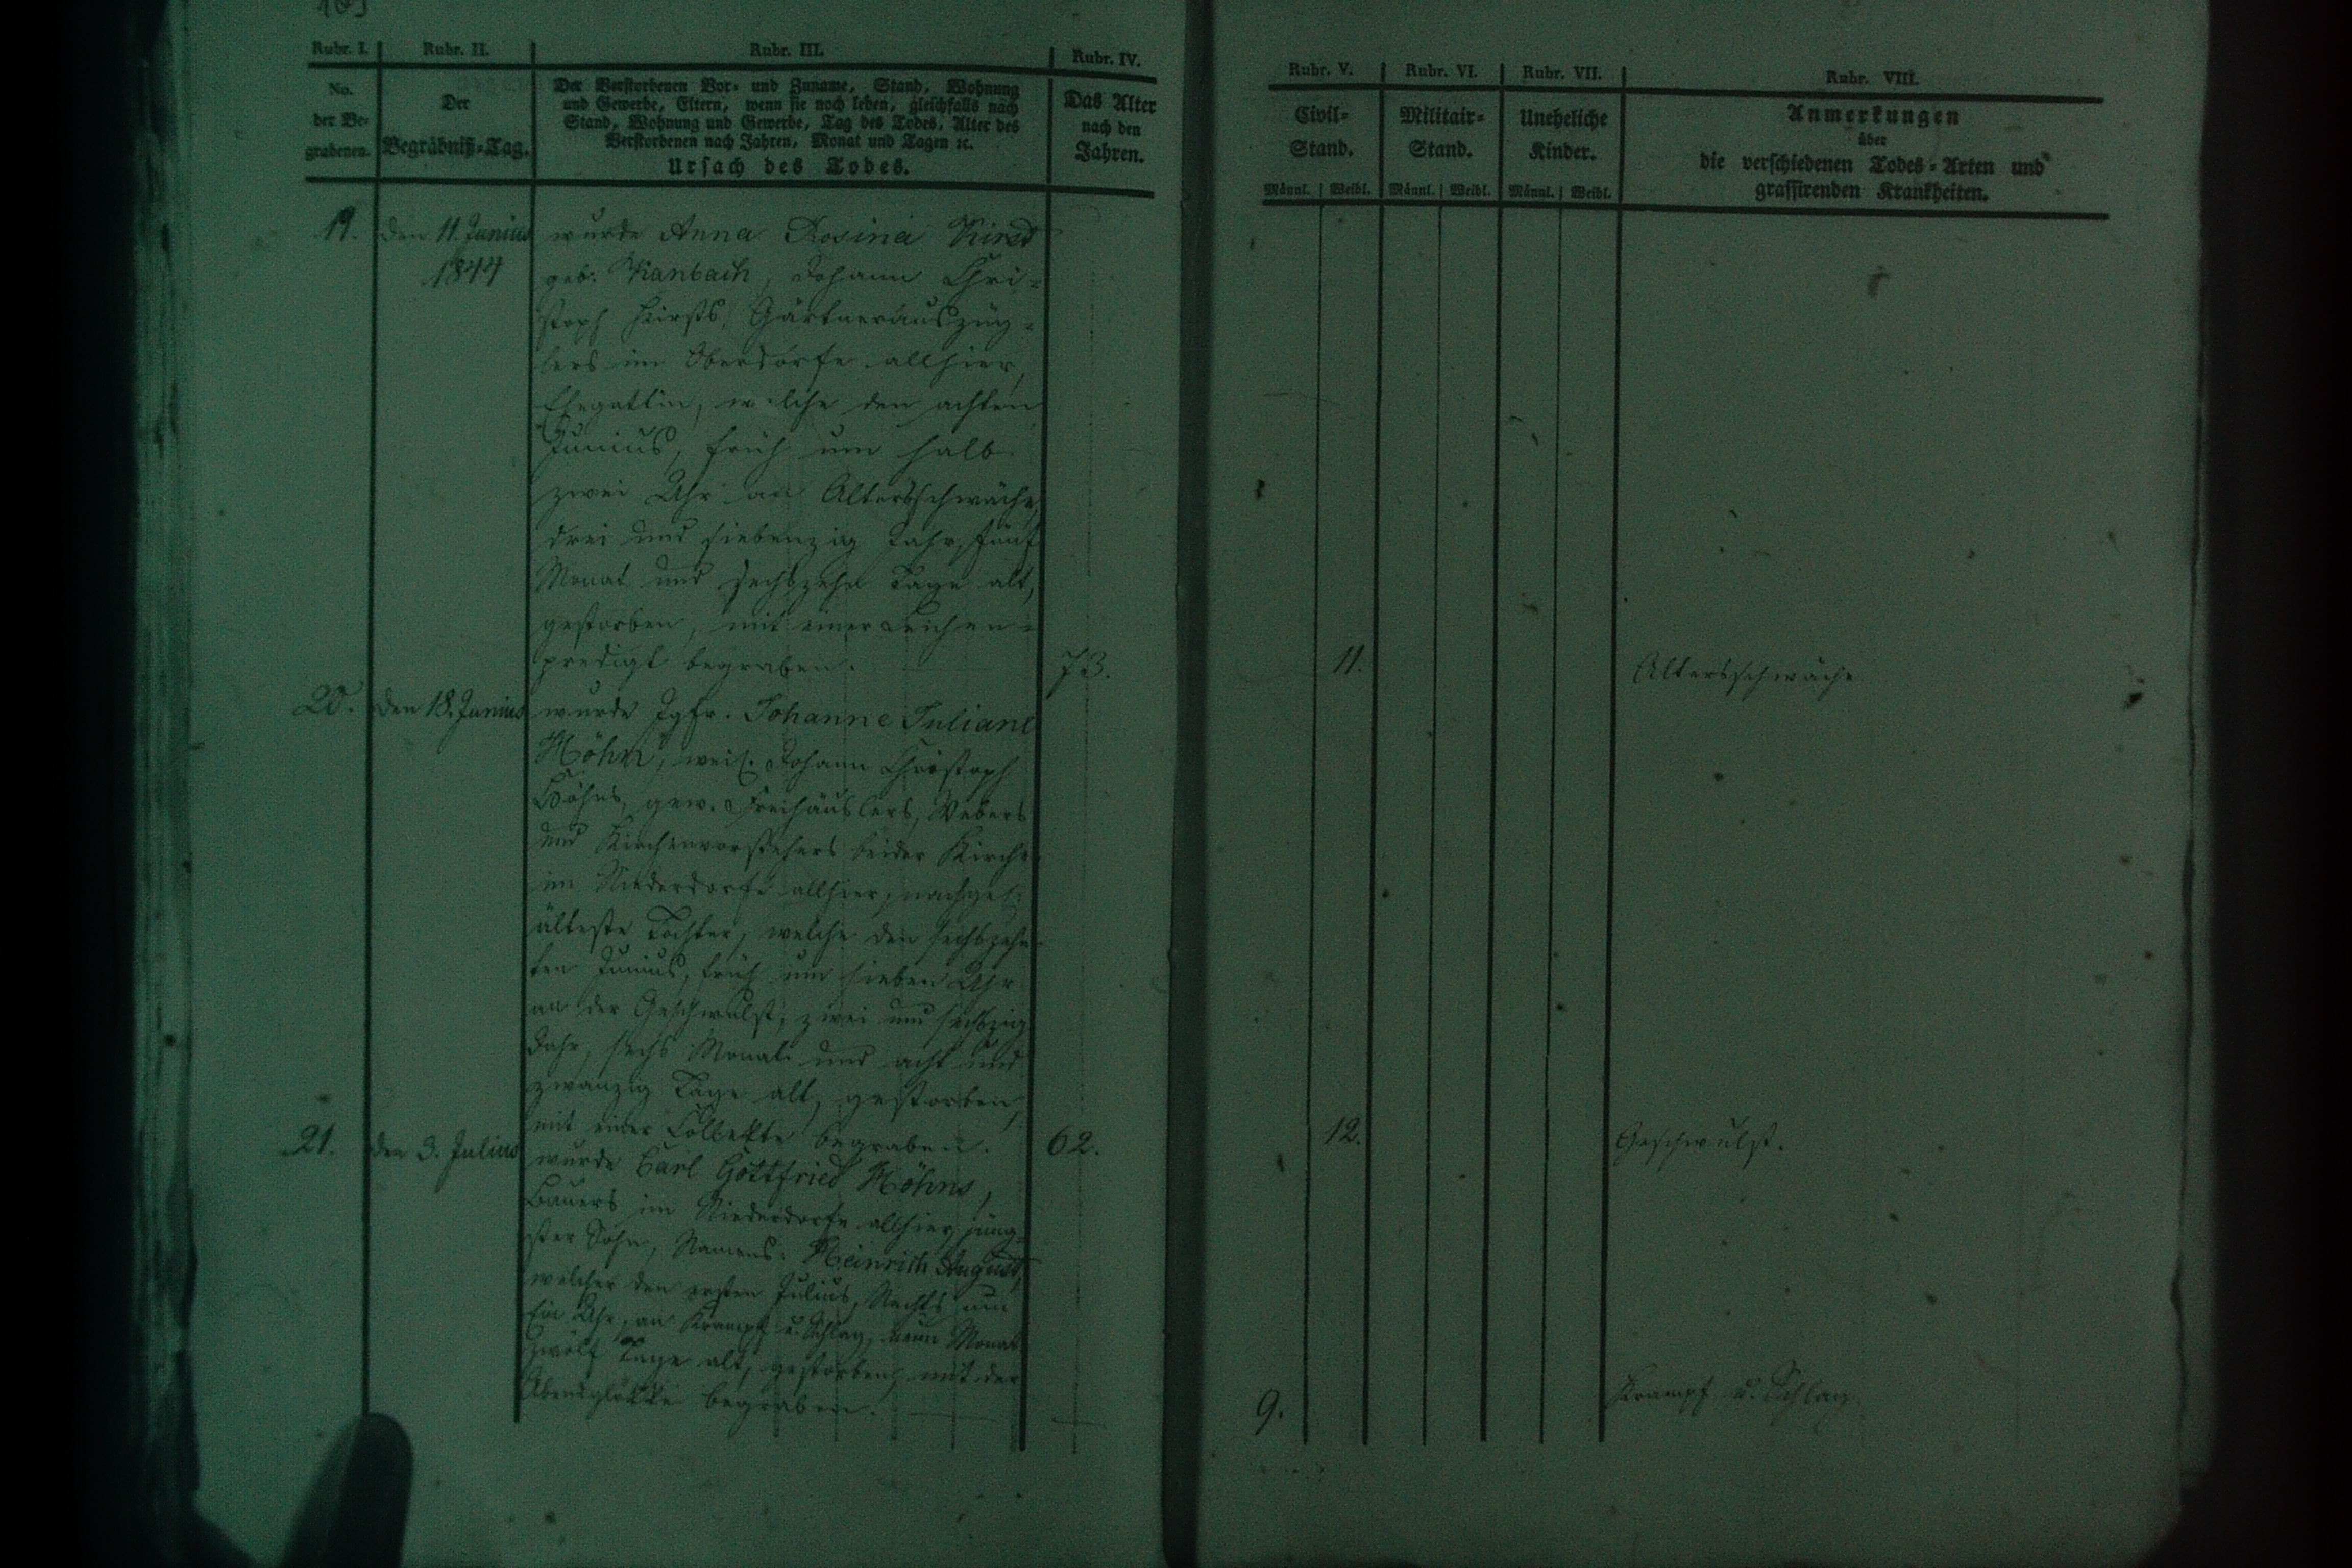 Rubr. I.
Rubr. II.
Rubr. III.
Rubr. IV.
No.
der Be-
grabenen.
Der
Begräbniß-Tag.
Der Verstorbenen Vor- und Zuname, Stand, Wohnung
und Gewerbe, Eltern, wenn sie noch leben, gleichfalls nach
Stand, Wohnung und Gewerbe, Tag des Todes, Alter des
Verstorbenen nach Jahren, Monat und Tagen ꝛc.
Ursach des Todes.
Das Alter
nach den
Jahren.
Rubr. V.
Rubr. VI.
Rubr. VII.
Rubr. VIII.
Civil-
Stand.
Militair-
Stand.
Uneheliche
Kinder.
Anmerkungen
über
die verschiedenen Todes-Arten und
grassirenden Krankheiten.
Männl. Weibl. Männl. Weibl. Männl. Weibl.
19. den 11. Junius
1844
wurde Anna Rosina
geb. Johann Chri-
stoph Gärtnerauszüg-
lers im Oberdorfe allhier,
Ehegattin, welche den achten
Junius, früh um halb
zwei Uhr an Altersschwäche,
drei und siebenzig Jahr, fünf
Monat und sechszehn Tage alt,
gestorben, mit einer Leichen-
predigt begraben. 73. 11. Altersschwäche
20. den 18. Junius wurde Jgfr. Johanne Juliane
Höhn, weil. Johann Christoph
Höhns, gew. Freihäuslers, Webers
und Kirchenvorstehers beider Kirche
im Niederdorfe allhier, nachgel.
älteste Tochter, welche den sechszehn-
ten Junius, früh um sieben Uhr
an der Geschwulst, zwei und sechszig
Jahr, sechs Monat und acht und
zwanzig Tage alt, gestorben,
mit einer Collekte begraben. 62. 12. Geschwulst.
21. den 3. Julius wurde Carl Gottfried Höhns,
Bauers im Niederdorfe allhier, jüng-
ster Sohn, Namens: Heinrich August,
welcher den ersten Julius, Nachts um
Ein Uhr, an Krampf u. Schlag, neun Monat
zwölf Tage alt, gestorben, mit der
Abendglocke begraben. 9. Krampf u. Schlag.